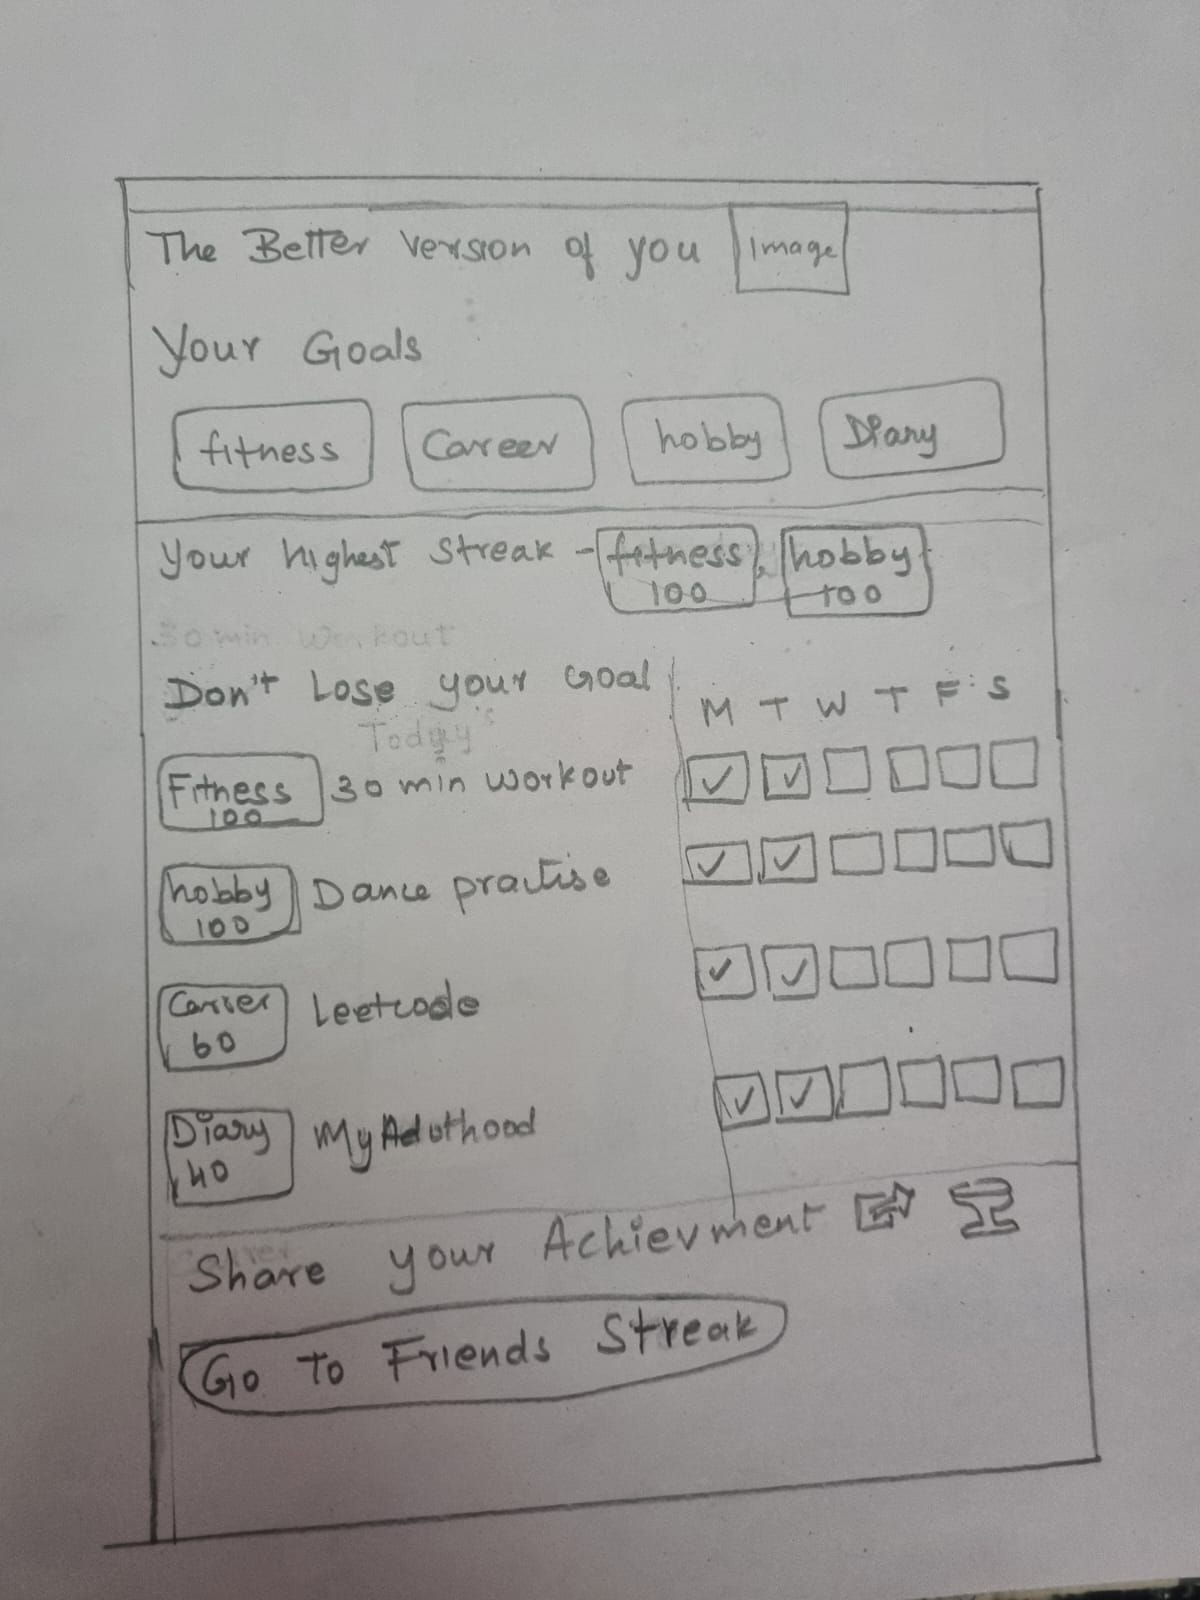 The Better version of you Image
Your Goals
fitness Career hobby Diary
Your highest Streak - fitness, hobby
100 100
30 min Workout
Don't Lose your Goal
Today's
M T W T F S
Fitness 30 min workout
100
hobby Dance practise
100
Carrer Leetcode
60
Diary My Aduthood
40
Share your Achievment
Go To Friends Streak